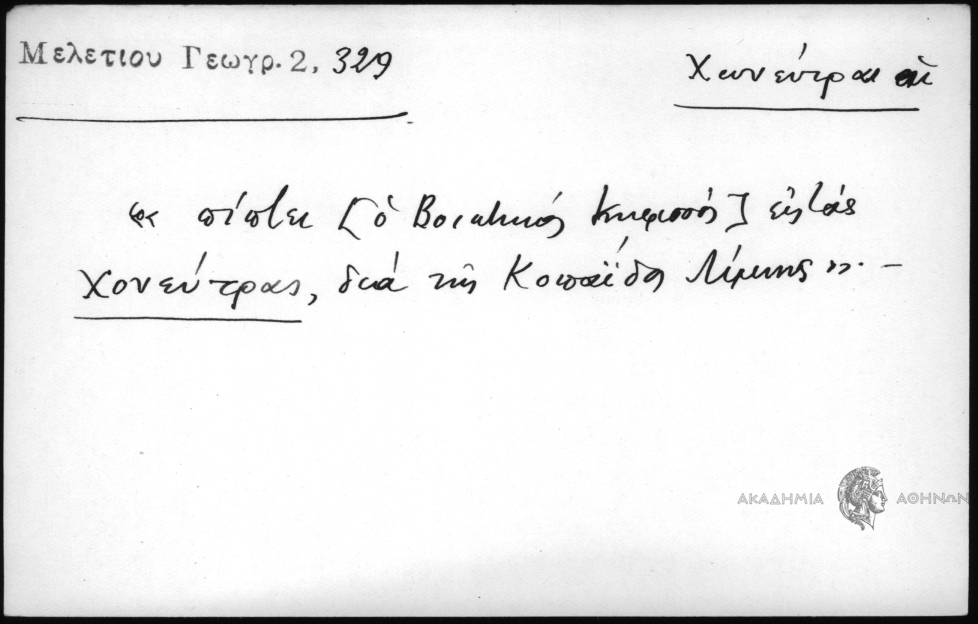 Μελετιου Γεωγρ. 2, 329
Χωνεύτραι αἱ
« πίπτει [ὁ Βοιωτικός Κηφισσός] εἰς τάς
Χονεύτρας, διά τῆς Κοπαΐδος Λίμνης ». –
ΑΚΑΔΗΜΙΑ ΑΘΗΝΩΝ